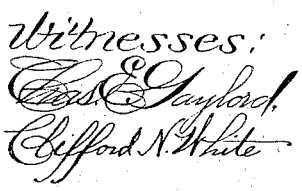 Witnesses:
Chas. E. Gaylord.
Clifford N. White